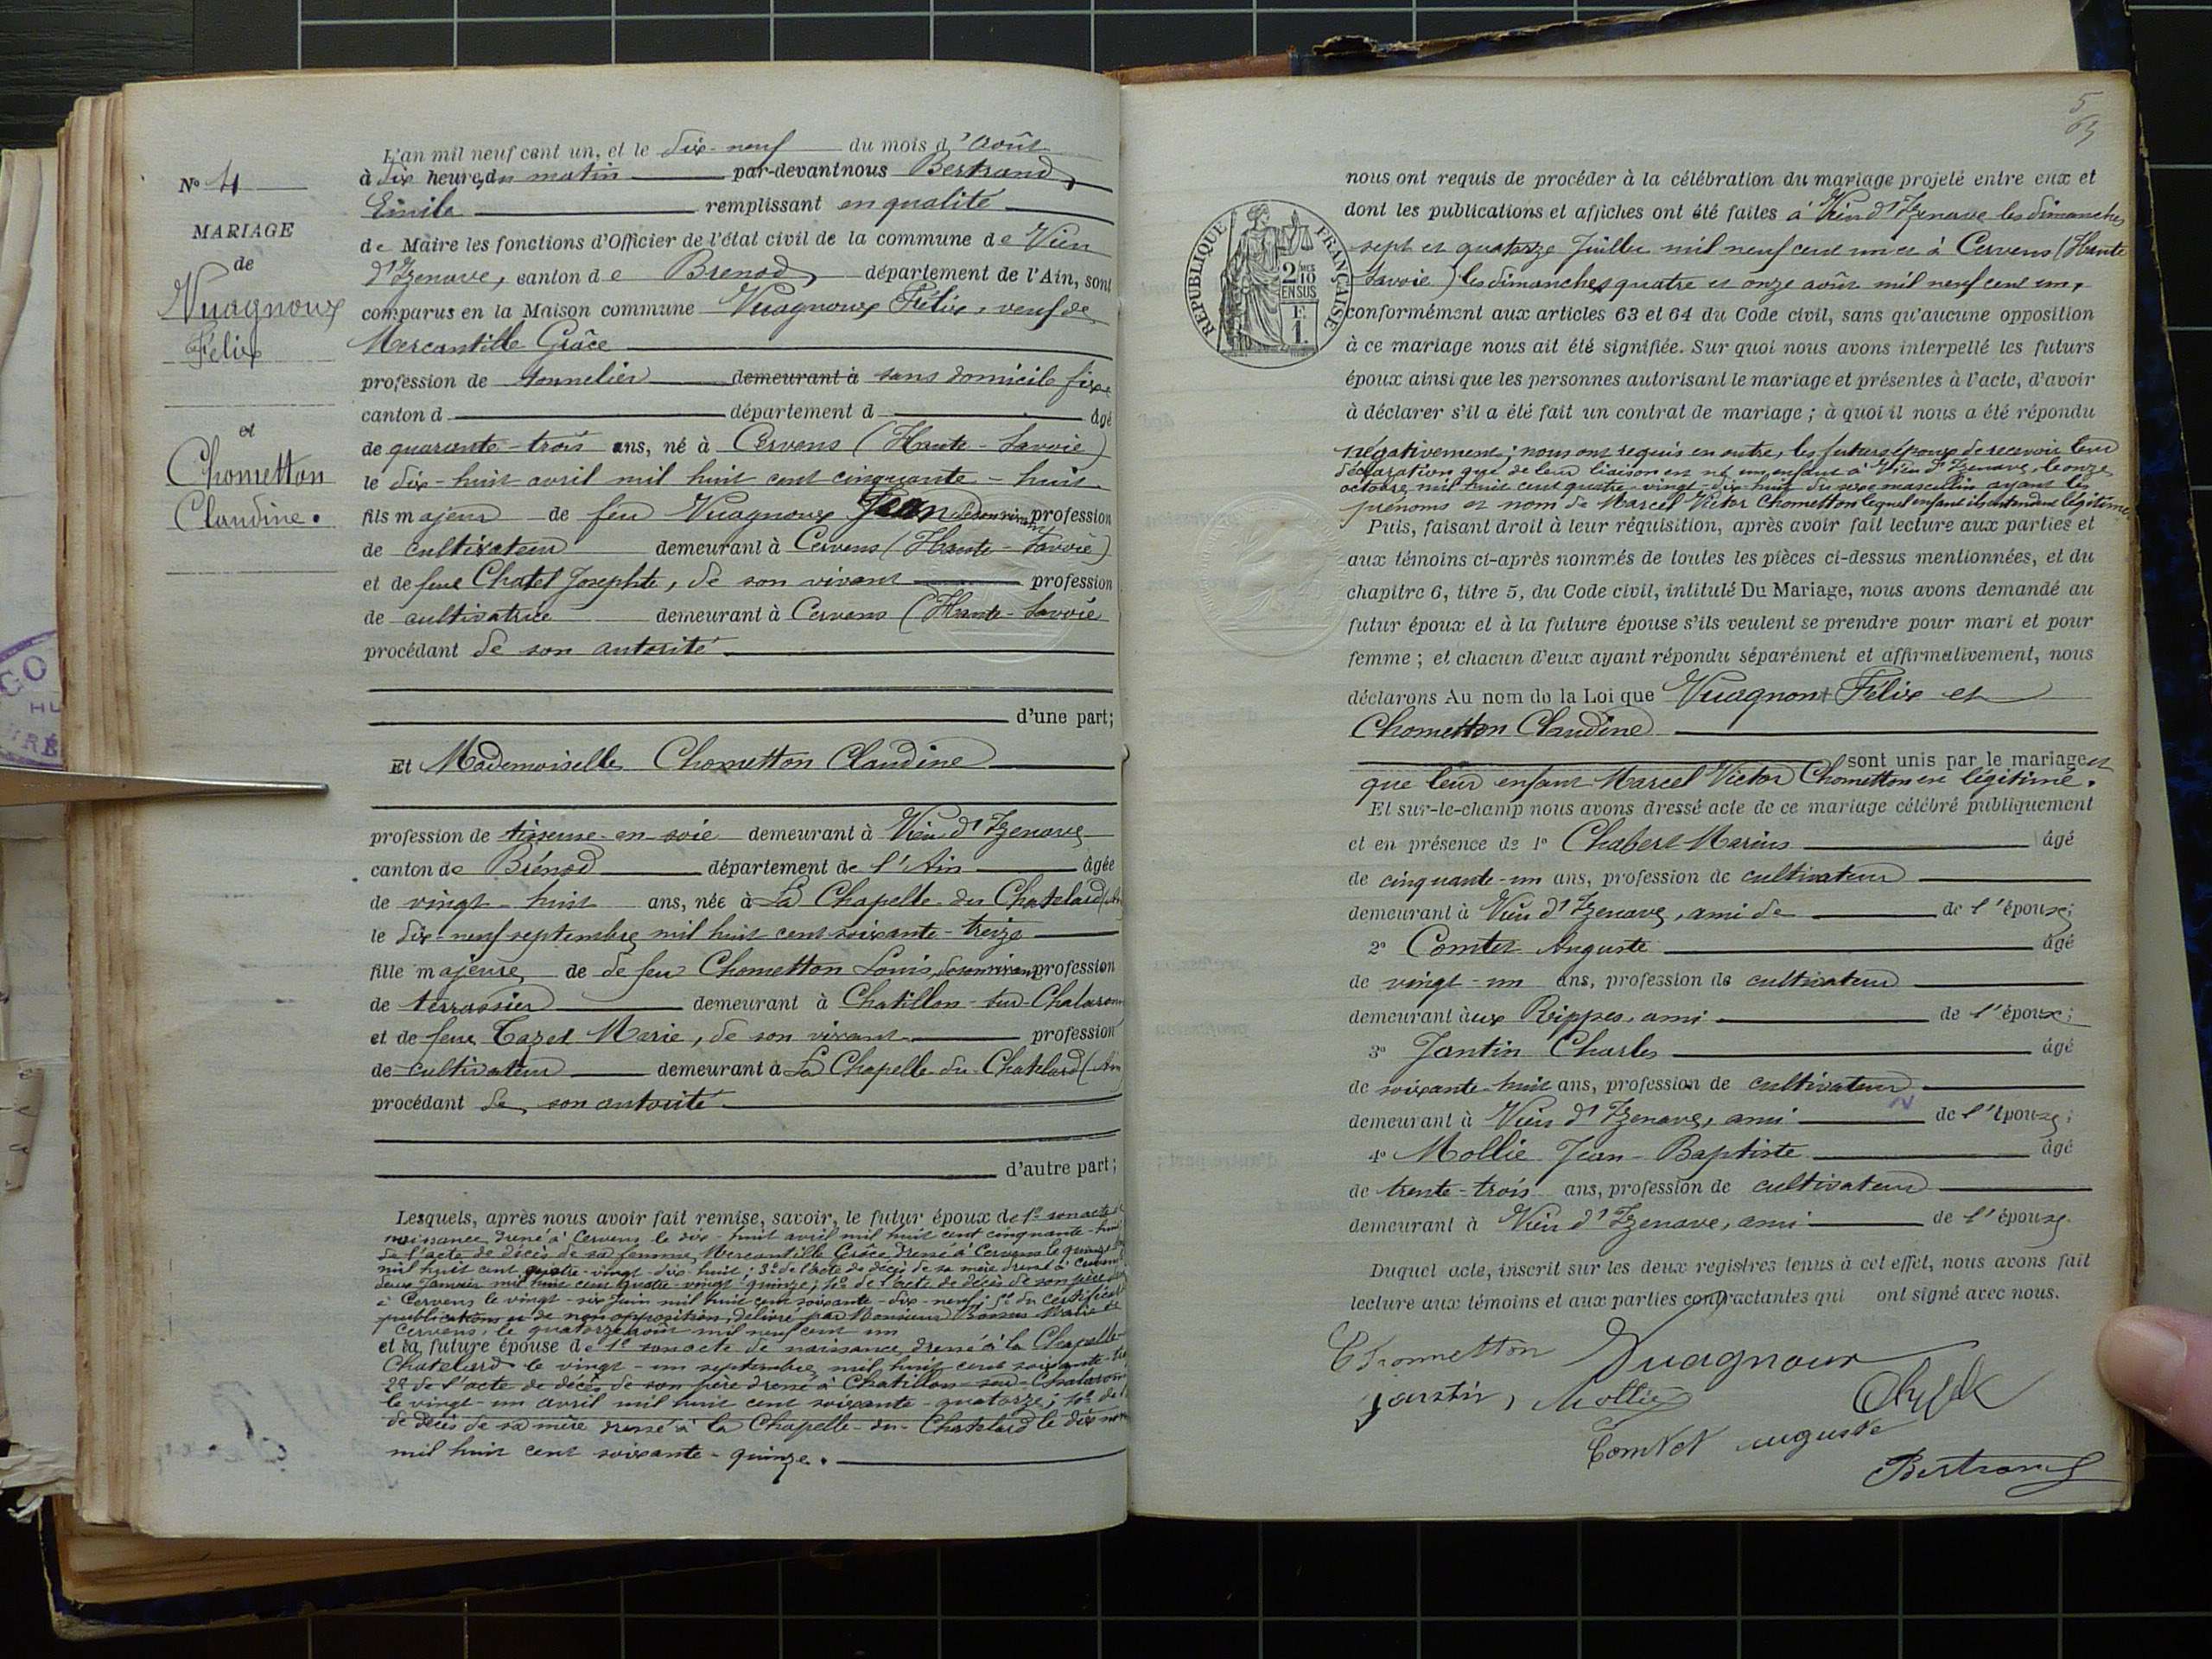 N° 4
MARIAGE
de
Vuagnoux
Félix
et
Chometton
Claudine.
L'an mil neuf cent un, et le dix-neuf du mois d'Août
à dix heures du matin par-devant nous Bertrand,
Emile remplissant en qualité
de Maire les fonctions d'Officier de l'état civil de la commune de Vieu
d'Izenave, canton de Brenod, département de l'Ain, sont
comparus en la Maison commune Vuagnoux Félix, veuf de
Mercantille Grâce
profession de tonnelier demeurant à sans domicile fixe
canton d département d âgé
de quarante-trois ans, né à Cervens (Haute-Savoie)
le dix-huit avril mil huit cent cinquante-huit
fils majeur de feu Vuagnoux Jean de son vivant profession
de cultivateur demeurant à Cervens (Haute-Savoie)
et de feue Chatel Josephte, de son vivant profession
de cultivatrice demeurant à Cervens (Haute-Savoie
procédant de son autorité
d'une part;
Et Mademoiselle Chometton Claudine
profession de tisseuse en soie demeurant à Vieu d'Izenave
canton de Brénod département de l'Ain âgée
de vingt-huit ans, née à La Chapelle-du-Chatelard (Ain
le dix-neuf septembre mil huit cent soixante-treize
fille majeure de de feu Chometton Louis, de son vivant profession
de terrassier demeurant à Chatillon-sur-Chalaronne
et de feue Cazet Marie, de son vivant profession
de cultivateur demeurant à La Chapelle-du-Chatelard (Ain
procédant de son autorité
d'autre part;
Lesquels, après nous avoir fait remise, savoir, le futur époux de 1° son acte de
naissance dressé à Cervens le dix-huit avril mil huit cent cinquante-huit
de l'acte de décès de sa femme Mercantille Grâce dressé à Cervens le quinze
mil huit cent quatre-vingt-dix-huit; 3° de l'acte de décès de sa mère dressé à Cervens
deux Janvier mil huit cent quatre-vingt-quinze; 4° de l'acte de décès de son père
à Cervens le vingt-six Juin mil huit cent soixante-dix-neuf; 5° du certificat
publications et de non opposition, délivré par Monsieur Maire de
Cervens, le quatorze août mil neuf cent un
et la future épouse de 1° son acte de naissance dressé à la Chapelle-
Chatelard le vingt-un septembre mil huit cent soixante-
2° de l'acte de décès de son père dressé à Chatillon-sur-Chalaronne
le vingt-un avril mil huit cent soixante-quatorze; 4° de l'
de décès de sa mère dressé à la Chapelle-du-Chatelard le dix
mil huit cent soixante-quinze.
5
RÉPUBLIQUE FRANÇAISE
2/10
EN SUS
F.
1.
nous ont requis de procéder à la célébration du mariage projeté entre eux et
dont les publications et affiches ont été faites à Vieu d'Izenave les dimanches
sept et quatorze Juillet mil neuf cent un et à Cervens (Haute
Savoie) les dimanches quatre et onze août mil neuf cent un,
conformément aux articles 63 et 64 du Code civil, sans qu'aucune opposition
à ce mariage nous ait été signifiée. Sur quoi nous avons interpellé les futurs
époux ainsi que les personnes autorisant le mariage et présentes à l'acte, d'avoir
à déclarer s'il a été fait un contrat de mariage; à quoi il nous a été répondu
négativement; nous ont requis en outre, les futurs époux de recevoir leur
déclaration que de leur liaison est né un enfant à Vieu d'Izenave, le onze
octobre mil huit cent quatre-vingt-dix-huit du sexe masculin ayant les
prénoms et nom de Marcel Victor Chometton lequel enfant ils entendent légitimer
Puis, faisant droit à leur réquisition, après avoir fait lecture aux parties et
aux témoins ci-après nommés de toutes les pièces ci-dessus mentionnées, et du
chapitre 6, titre 5, du Code civil, intitulé Du Mariage, nous avons demandé au
futur époux et à la future épouse s'ils veulent se prendre pour mari et pour
femme; et chacun d'eux ayant répondu séparément et affirmativement, nous
déclarons Au nom de la Loi que Vuagnoux Félix et
Chometton Claudine
sont unis par le mariage et
que leur enfant Marcel Victor Chometton est légitimé.
Et sur-le-champ nous avons dressé acte de ce mariage célébré publiquement
et en présence de 1° Chabert Marius âgé
de cinquante-un ans, profession de cultivateur
demeurant à Vieu d'Izenave, ami de de l'épouse;
2° Comtet Auguste âgé
de vingt-un ans, profession de cultivateur
demeurant aux Rippes, ami de l'époux;
3° Jantin Charles âgé
de soixante-huit ans, profession de cultivateur
demeurant à Vieu d'Izenave, ami de l'épouse;
4° Mollie Jean-Baptiste âgé
de trente-trois ans, profession de cultivateur
demeurant à Vieu d'Izenave, ami de l'épouse.
Duquel acte, inscrit sur les deux registres tenus à cet effet, nous avons fait
lecture aux témoins et aux parties contractantes qui ont signé avec nous.
Chonmetton Vuagnoux
Jantin, Mollie
Comtet auguste
Bertrand